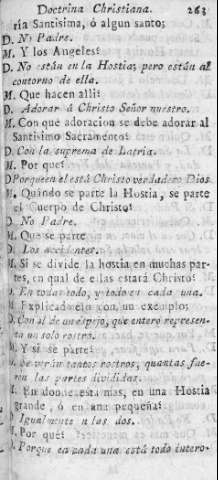 Doctrina Christiana. 263
ría Santisima, ó algun santo?
D. No Padre.
M. Y los Angeles?
D. No están en la Hostia; pero están al
contorno de ella.
M. Que hacen allí?
D. Adorar á Christo Señor nuestro.
M. Con qué adoracion se debe adorar al
Santísimo Sacramento?
D. Con la suprema de Latría.
M. Por qué?
D Porque en el está Christo verdadero Dios.
M. Quándo se parte la Hostia, se parte
el Cuerpo de Christo?
D. No Padre.
M. Que se parte?
D. Los accidentes.
M. Si se divide la hostia en muchas par-
tes, en qual de ellas estará Christo?
D. En todas todo, y todo en cada una.
M. Explicadmelo con un exemplo?
D. Con el de un espejo, que entero represen-
ta un solo rostro.
M. Y si se parte?
D. Se verán tantos rostros, quantas fue-
ron las partes divididas.
M. En donde está mas, en una Hostia
grande, ó en una pequeña?
D. Igualmente en las dos.
M. Por qué?
D. Porque en cada una está todo entero-